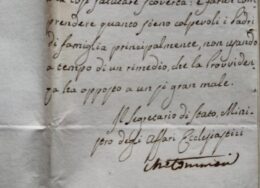 così salutare scoverta: e farsi com-
prendere quanto sieno colpevoli i Padri
di famiglia principalmente, non usando
a tempo di un rimedio, che la Provviden-
za ha opposto a un sì gran male.
Il Segretario di Stato, Mini-
stro degli Affari Ecclesiastici